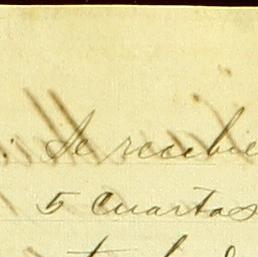 Se recibie
5 cuartas